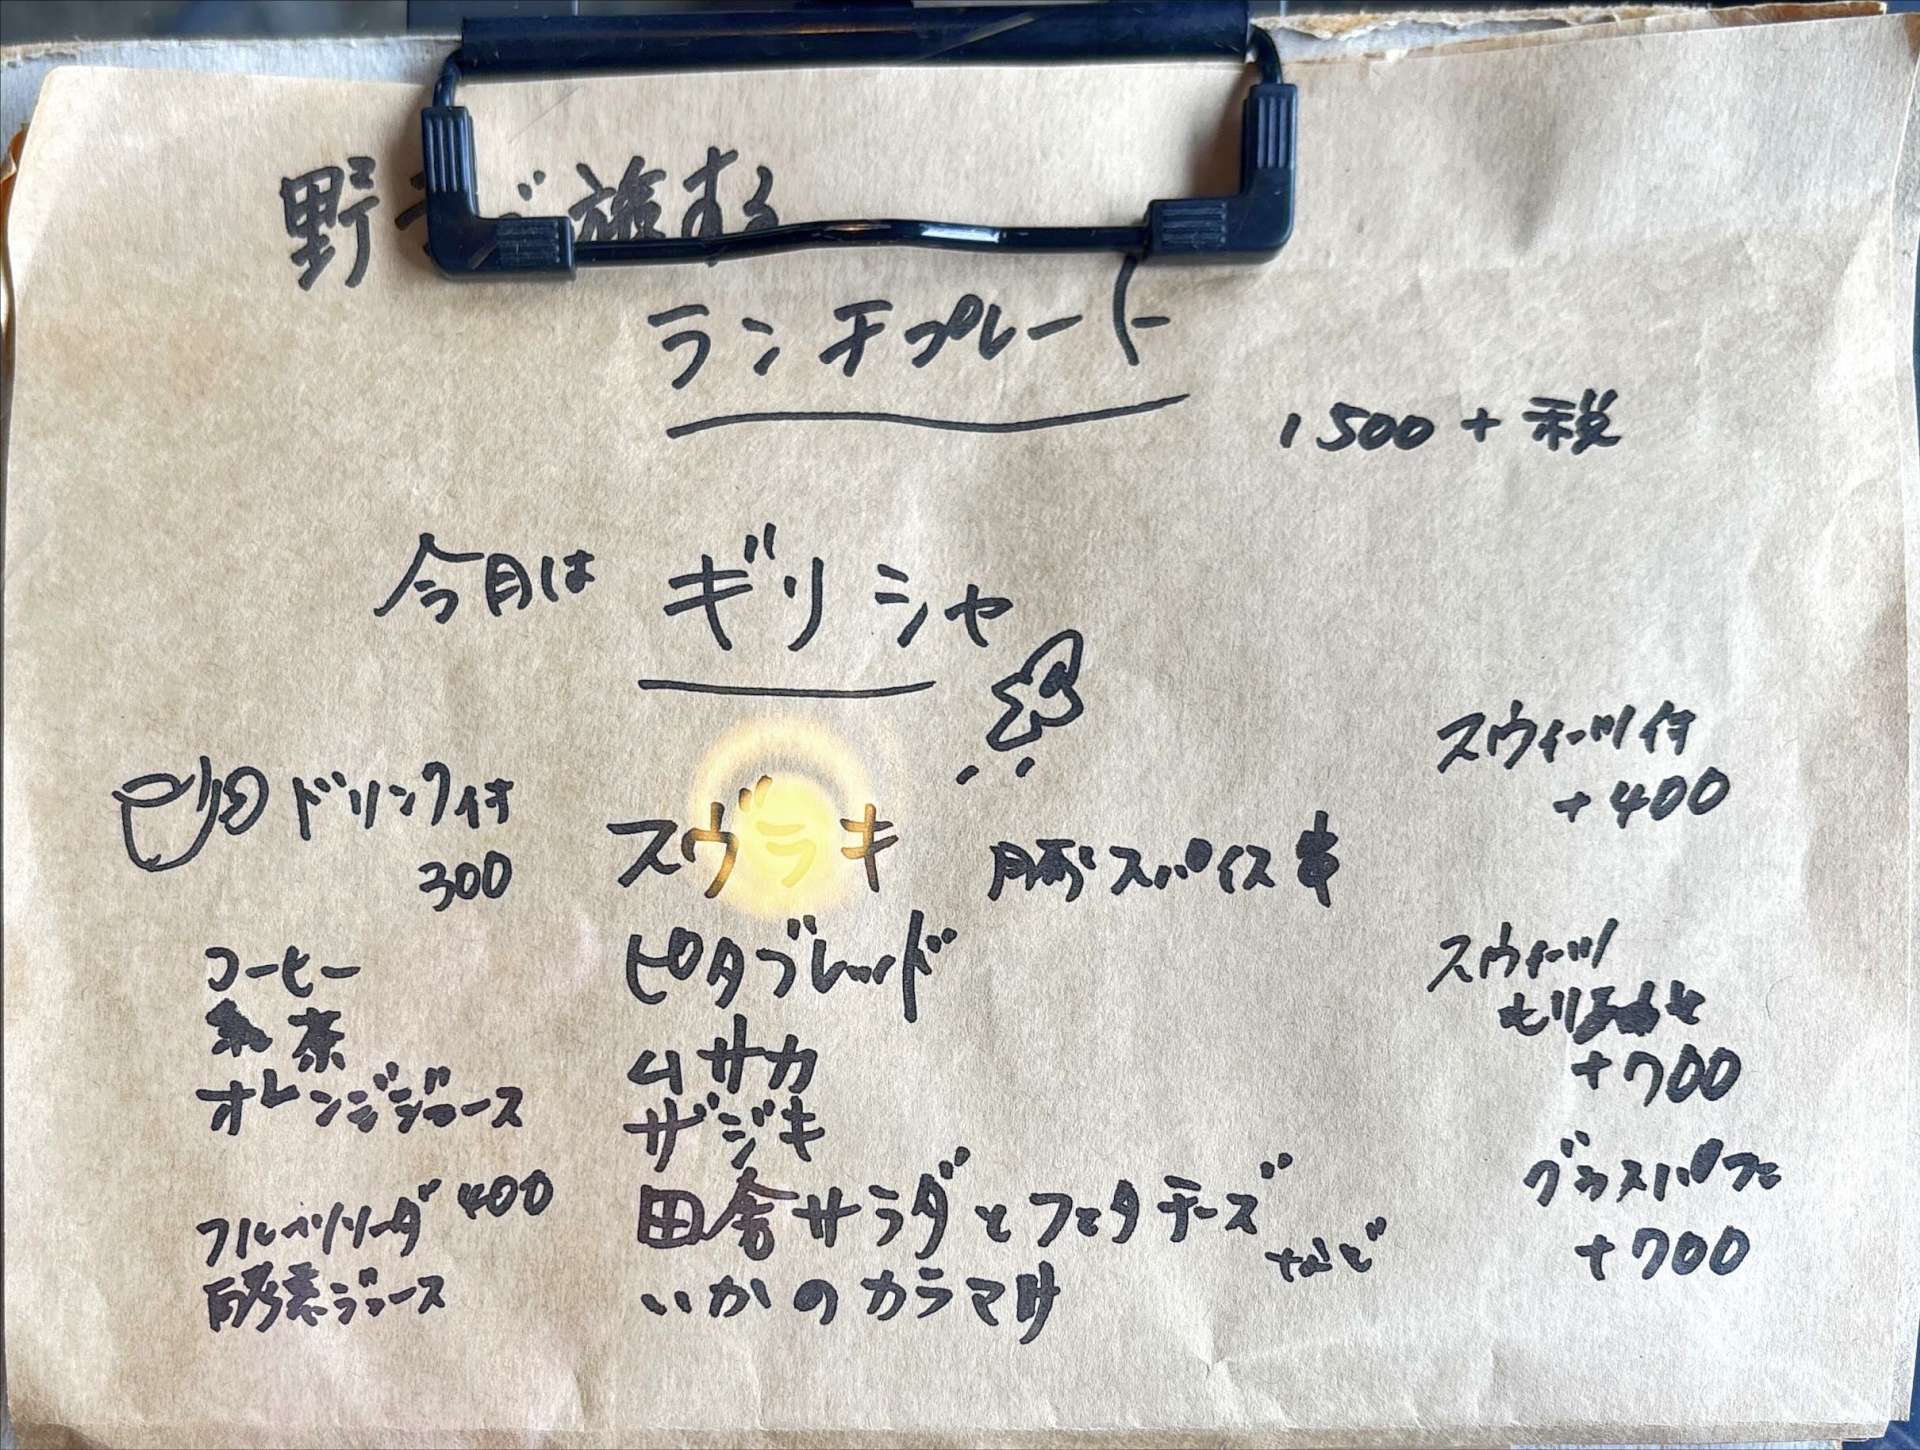 野菜で旅する
ランチプレート
1500+税
今月は ギリシャ
ドリンク付
300
コーヒー
紅茶
オレンジジュース
フルーツソーダ 400
酵素ジュース
スヴラキ 豚スパイス串
ピタブレッド
ムサカ
ザジキ
田舎サラダとフェタチーズ
いかのカラマリ
など
スウィーツ付
+400
スウィーツ
+700
グラスパフェ
+700